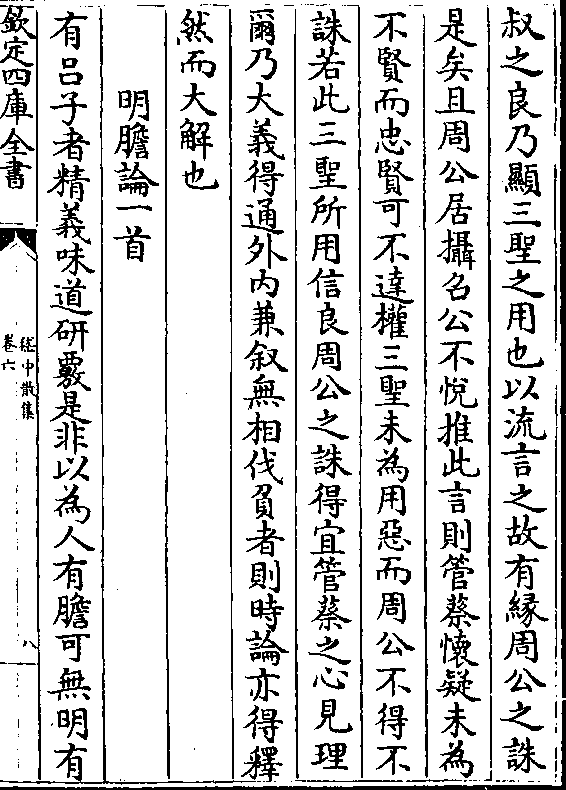 叔之良乃顯三聖之用也以流言之故有緣周公之誅
是矣且周公居攝名公不悅推此言則管蔡懷疑未為
不賢而忠賢可不達權三聖未為用惡而周公不得不
誅若此三聖所用信良周公之誅得宜管蔡之心見理
爾乃大義得通外内兼叙無相伐負者則時論亦得釋
然而大解也
明膽論一首
有吕子者精義味道研覈是非以為人有膽可無明有
欽定四庫全書
嵇中散集
卷六
八